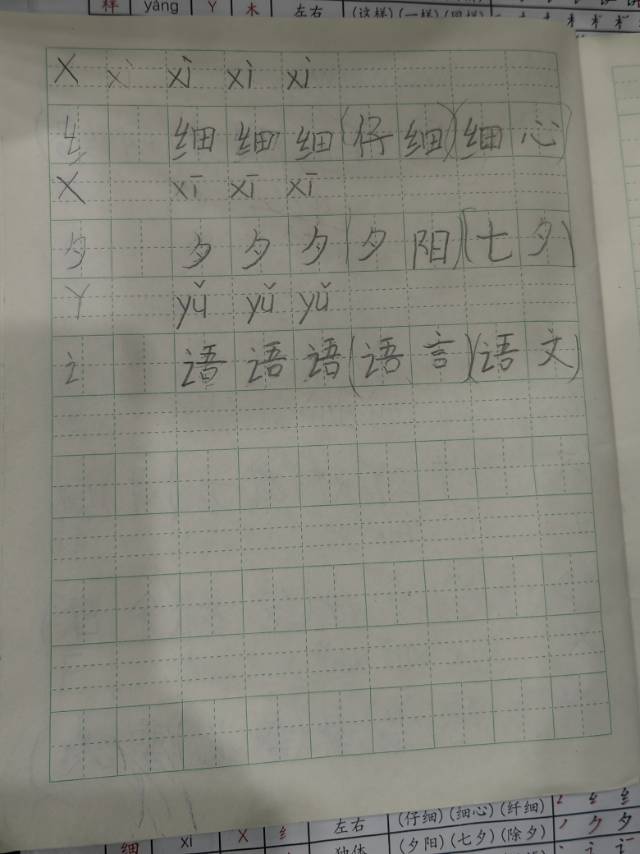 样 yàng Y 木 左右 (这样)(一样)(同样)
X xì xì xì xì
纟 细 细 细 (仔细)(细心)
X xī xī xī
夕 夕 夕 夕 (夕阳)(七夕)
Y yǔ yǔ yǔ
讠 语 语 语 (语言)(语文)
细 xì X 纟 左右 (仔细)(细心)(纤细)
独体 (夕阳)(七夕)(除夕)